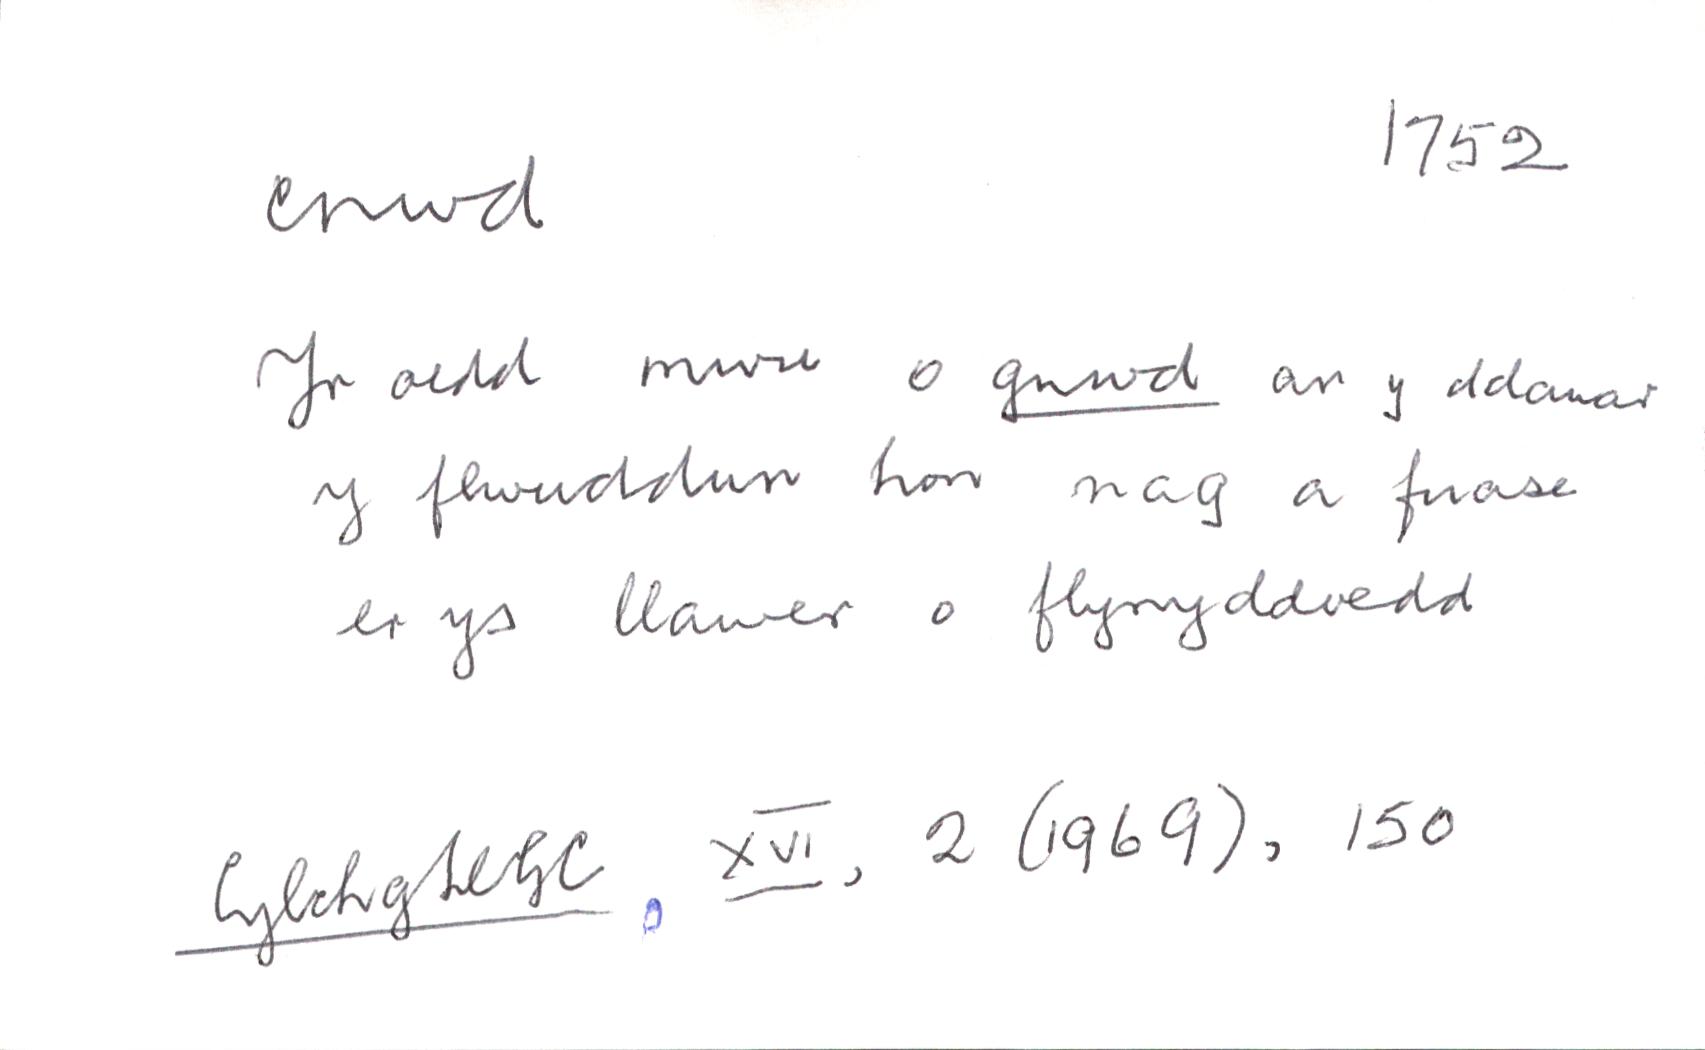 1752
cnwd
Yr oedd mwu o gnwd ar y ddauar
y flwuddun hon nag a fuase
er ys llawer o flynyddoedd
CylchgLlGC, XVI, 2 (1969), 150